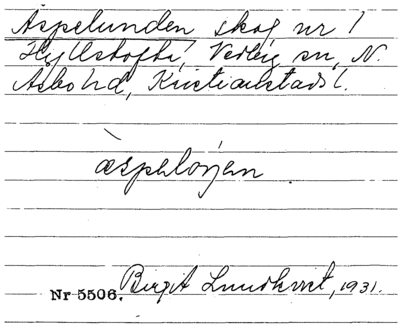 Aspelunden skog nr 1
Hyllstofta, Vedby sn, N.
Åsbo hd, Kristianstads l.
æspelonjen
Nr 5506. Birgit Lundkvist, 1931.